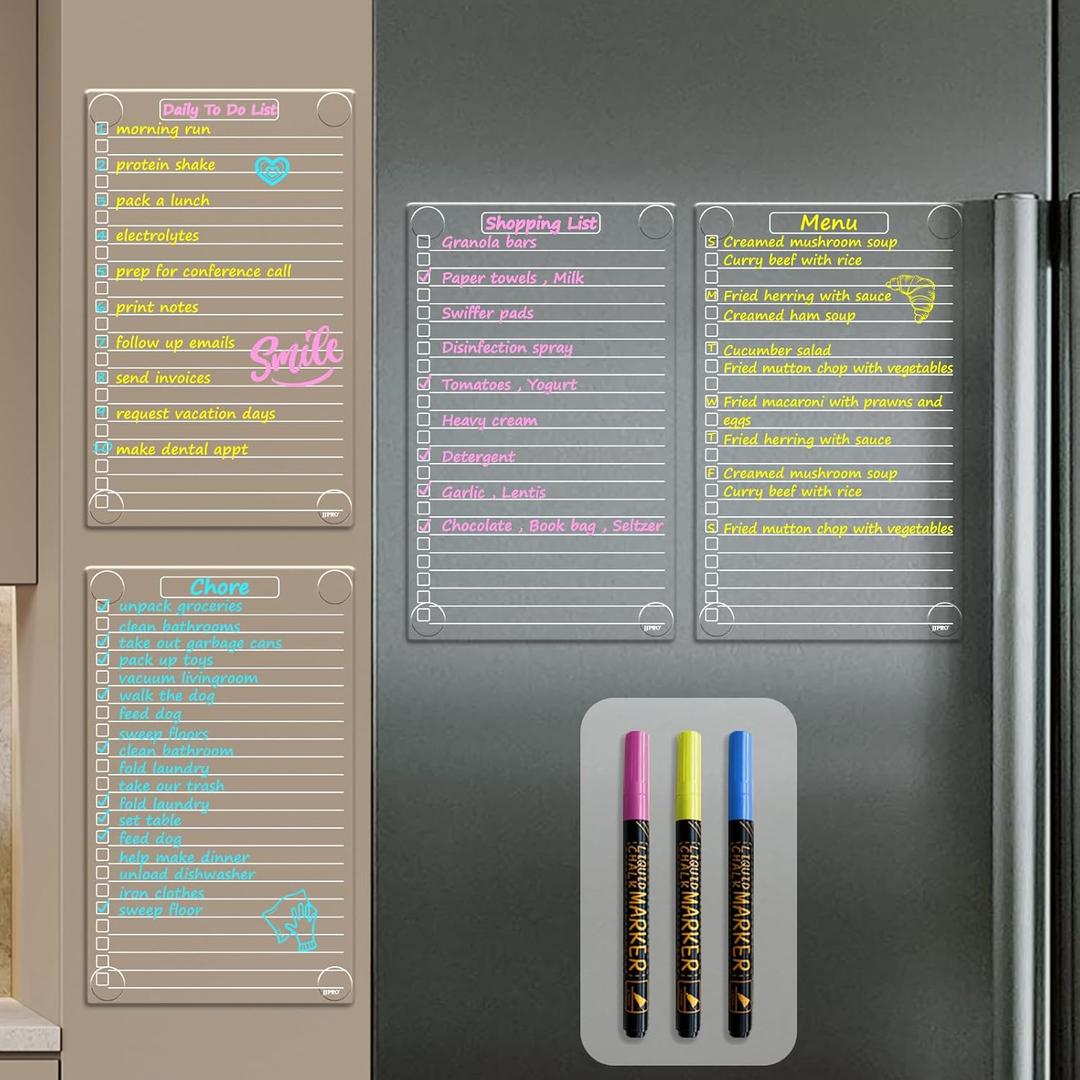 Daily To Do List
1 morning run
2 protein shake
3 pack a lunch
4 electrolytes
5 prep for conference call
6 print notes
7 follow up emails
Smile
8 send invoices
9 request vacation days
10 make dental appt
JJPRO
Chore
unpack groceries
clean bathrooms
take out garbage cans
pack up toys
vacuum livingroom
walk the dog
feed dog
sweep floors
clean bathroom
fold laundry
take our trash
fold laundry
set table
feed dog
help make dinner
unload dishwasher
iron clothes
sweep floor
JJPRO
Shopping List
Granola bars
Paper towels , Milk
Swiffer pads
Disinfection spray
Tomatoes , Yogurt
Heavy cream
Detergent
Garlic , Lentis
Chocolate , Book bag , Seltzer
JJPRO
Menu
S Creamed mushroom soup
Curry beef with rice
M Fried herring with sauce
Creamed ham soup
T Cucumber salad
Fried mutton chop with vegetables
W Fried macaroni with prawns and
eggs
T Fried herring with sauce
F Creamed mushroom soup
Curry beef with rice
S Fried mutton chop with vegetables
JJPRO
LIQUID CHALK MARKER
LIQUID CHALK MARKER
LIQUID CHALK MARKER